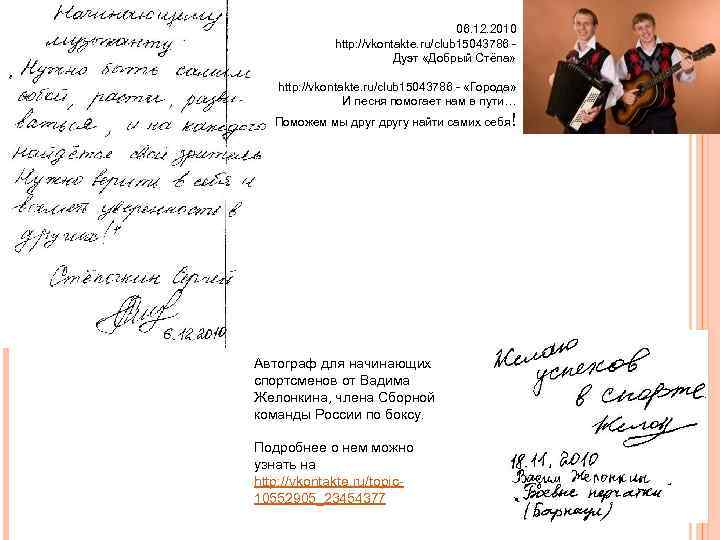 Начинающему
музыканту.
„Нужно быть самим
собой, расти, разви-
ваться, и на каждого
найдётся свой зритель
Нужно верить в себя и
вселять уверенность в
других!"
Стёпочкин Сергей
6.12.2010
06.12.2010
http://vkontakte.ru/club15043786 -
Дуэт «Добрый Стёпа»
http://vkontakte.ru/club15043786 - «Города»
И песня помогает нам в пути…
Поможем мы друг другу найти самих себя!
Автограф для начинающих
спортсменов от Вадима
Желонкина, члена Сборной
команды России по боксу.
Подробнее о нем можно
узнать на
http://vkontakte.ru/topic-
10552905_23454377
Желаю
успехов
в спорте
18.11.2010
Вадим Желонкин
„Боевые перчатки"
(Барнаул)